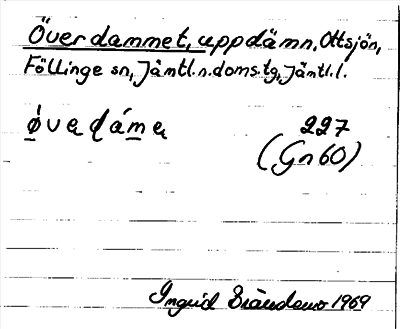 Överdammet, uppdämn. Ottsjön,
Föllinge sn, Jämtl.n.doms.tg, Jämtl.l.
227
(Gn 60)
Ingrid 1969